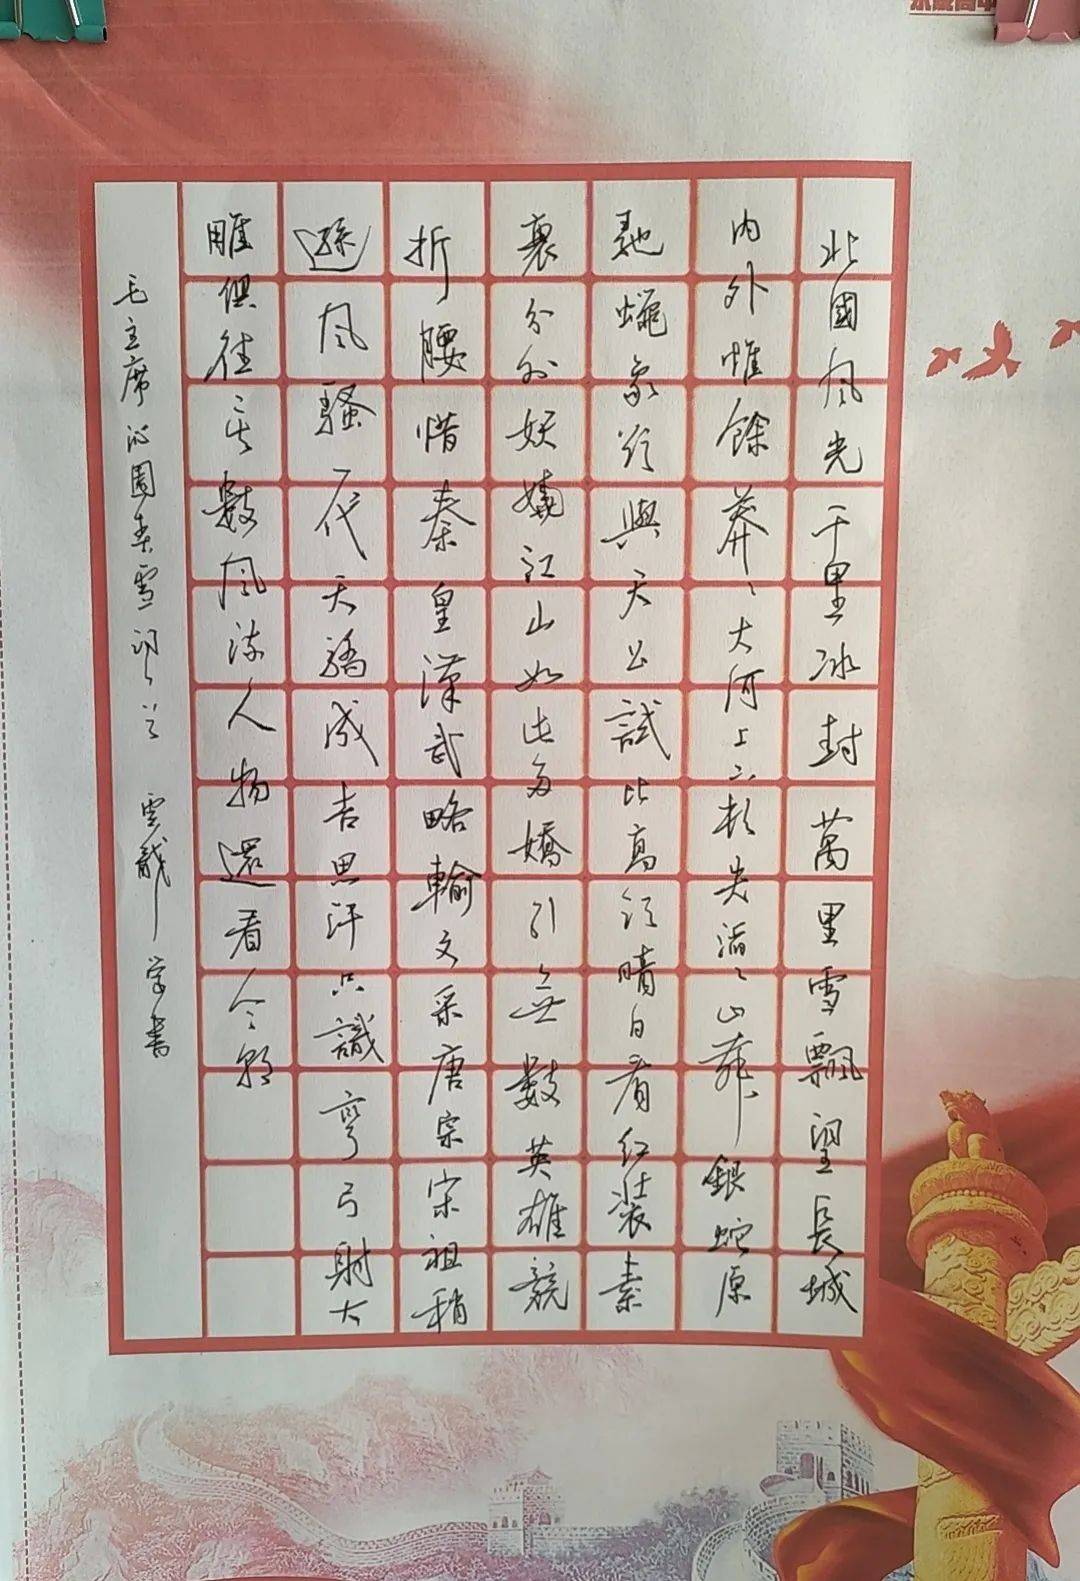 北國風光千里冰封萬里雪飄望長城
内外惟餘莽々大河上下頓失滔々山舞銀蛇原
馳蠟象欲與天公試比高須晴日看红裝素
裹分外妖嬈江山如此多嬌引無數英雄競
折腰惜秦皇漢武略輸文采唐宗宋祖稍
遜風騷一代天驕成吉思汗只識彎弓射大
雕俱往矣數風流人物還看今朝
毛主席沁園春雪詞一首 雲龍学書